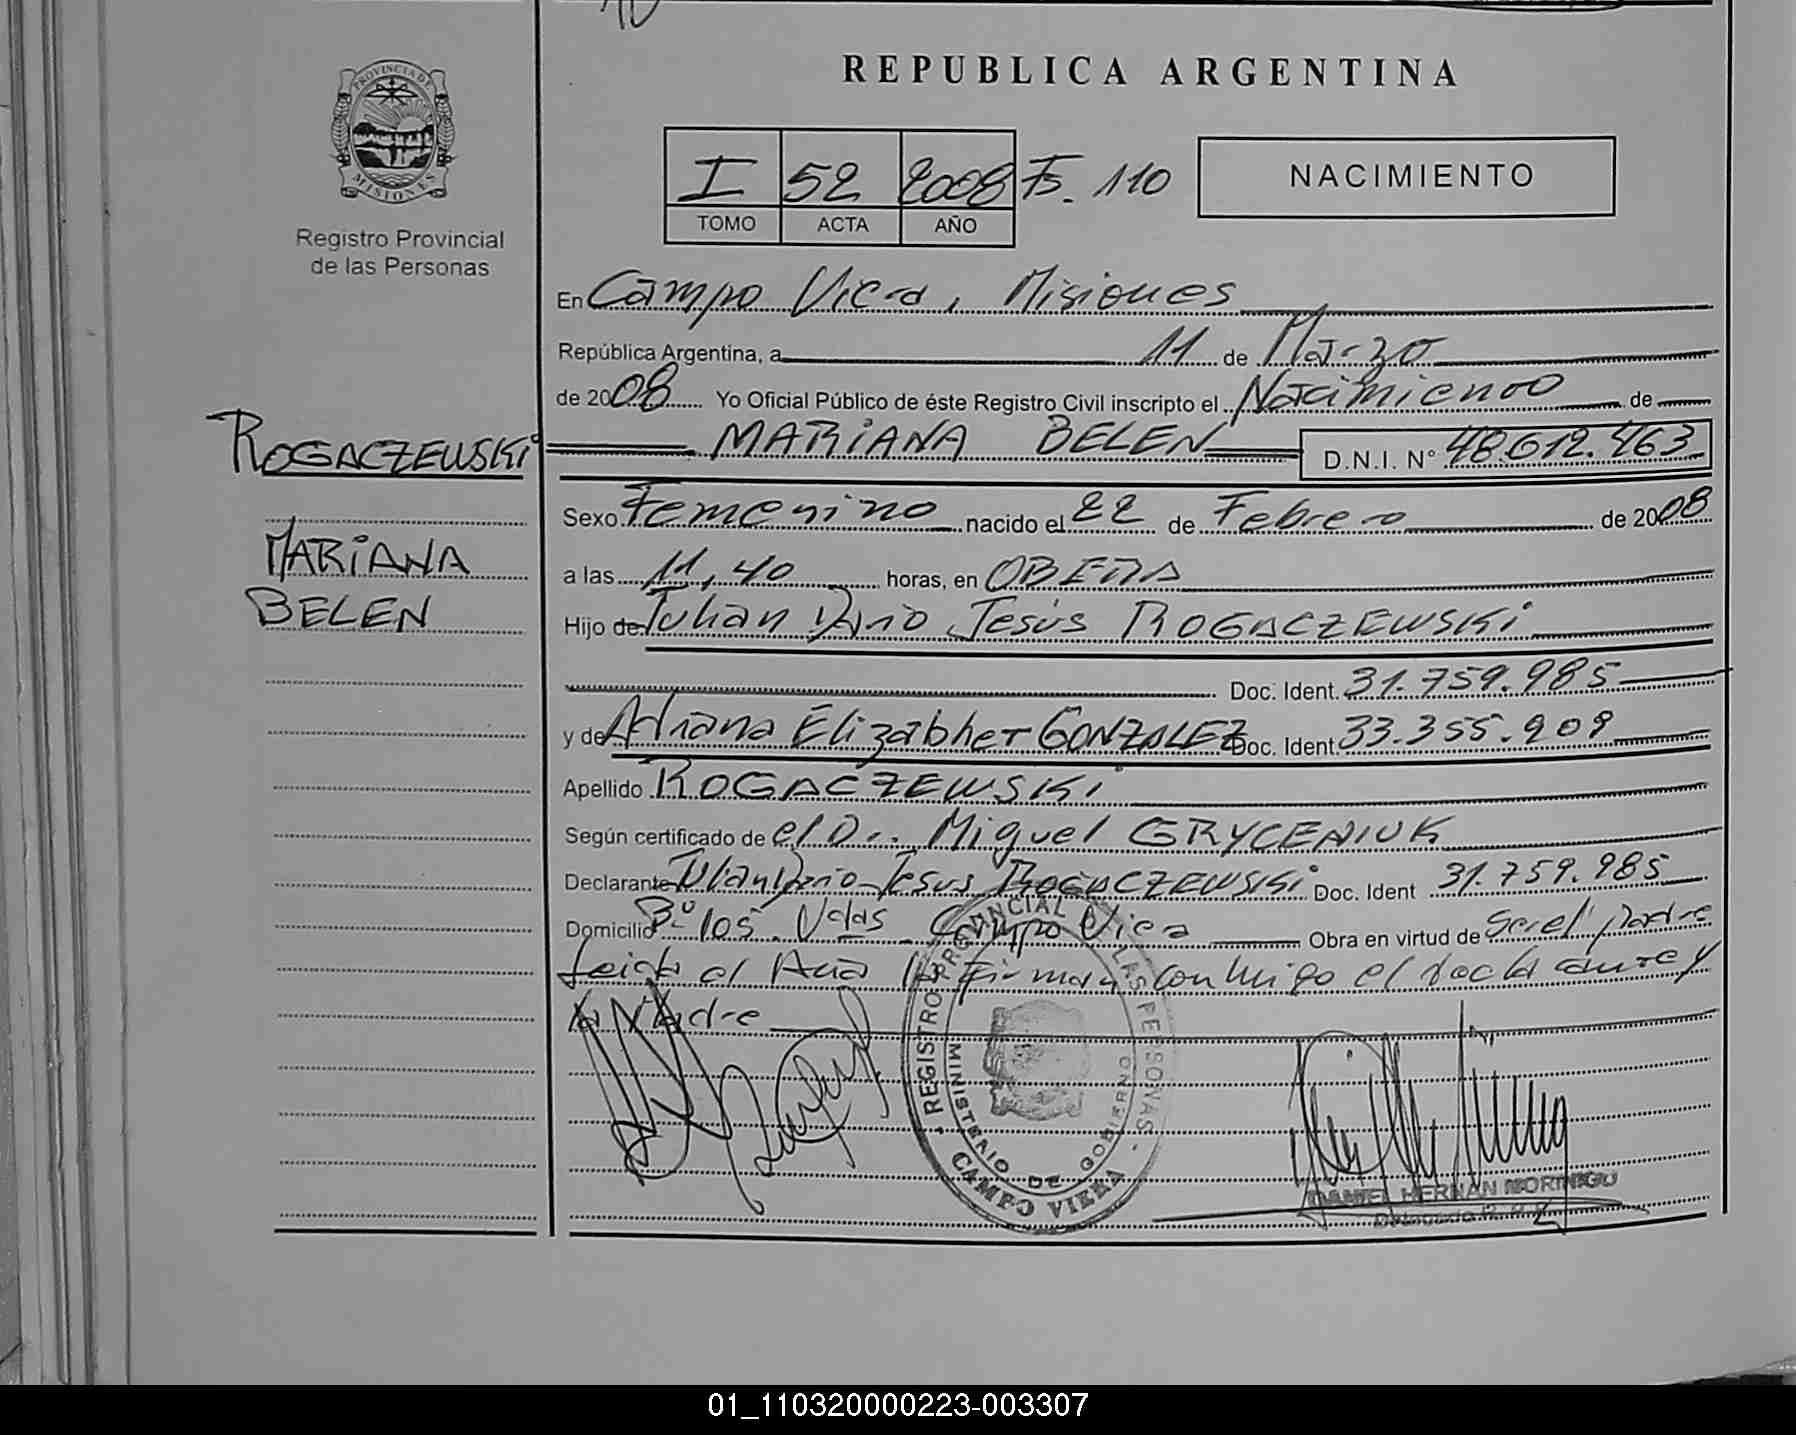 PROVINCIA DE
MISIONES
Registro Provincial
de las Personas
ROGACZEWSKI
MARIANA
BELEN
REPUBLICA ARGENTINA
I 52 2008 Fs. 110
TOMO ACTA AÑO
NACIMIENTO
En Campo Viera, Misiones
República Argentina, a 11 de Marzo
de 2008 Yo Oficial Público de éste Registro Civil inscripto el Nacimiento de
MARIANA BELEN D.N.I. N° 48.612.463
Sexo Femenino nacido el 22 de Febrero de 2008
a las 11,40 horas, en OBERA
Hijo de Julian Dario Jesús ROGACZEWSKI
Doc. Ident. 31.759.985
y de Adriana Elizabher GONZALEZ Doc. Ident. 33.355.909
Apellido ROGACZEWSKI
Según certificado de el Dr. Miguel GRYCENIUK
Declarante Julian Dario Jesus ROGACZEWSKI Doc. Ident 31.759.985
Domicilio B° 105 Vdas Campo Viera Obra en virtud de ser el padre
Leida el Acta la firman conmigo el declarante y
la Madre
REGISTRO PROVINCIAL DE LAS PERSONAS
MINISTERIO DE GOBIERNO
CAMPO VIERA
DANIEL HERNAN MORINIGO
01_110320000223-003307